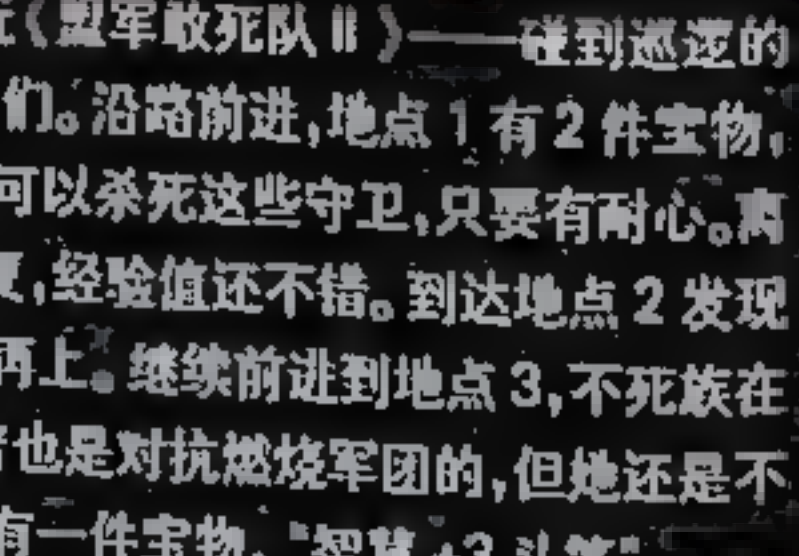 《盟军敢死队Ⅱ》——碰到巡逻的
们。沿路前进,地点1有2件宝物,
可以杀死这些守卫,只要有耐心。离
,经验值还不错。到达地点2发现
再上。继续前进到地点3,不死族在
也是对抗燃烧军团的,但她还是不
有一件宝物,"智慧+3斗篷"